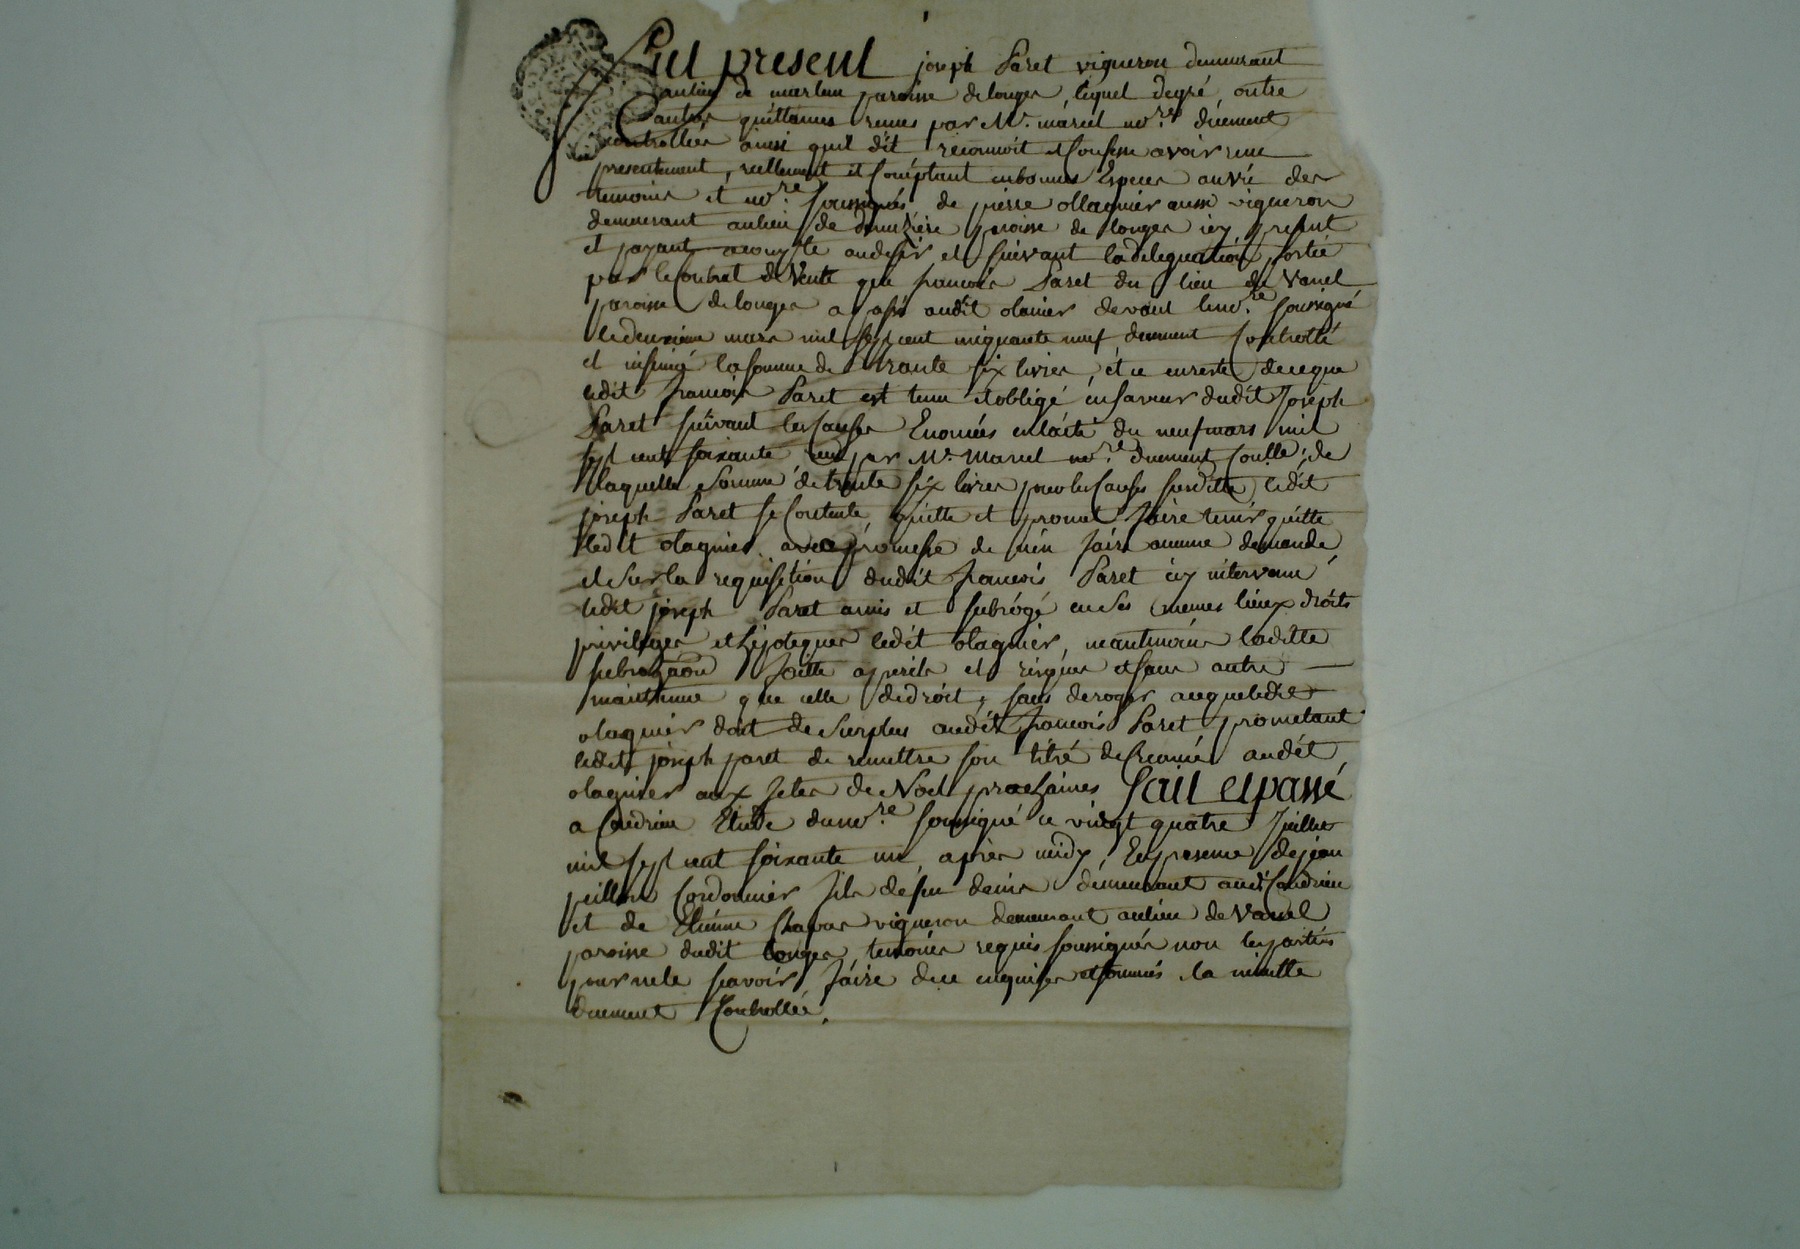 Fut present joseph Paret vigneron demeurant
au lieu de marlin paroisse de longes, lequel de gré, outre
autres quittances reçues par Me. marcel no.re düement
controllées ainsi qu'il dit reconnoit et Confesse avoir reçu
presentement, reellement et Comptant en bonnes Especes au vû des
temoins et no.re soussignés de pierre ollagnier aussi vigneron
demeurant au lieu de paroisse de longes icy present
et payant acompte au desir et suivant la delegation portée
par le Contrat de Vente que francois Paret du lieu de Vanel
paroisse de longes a passé audit olanier devant le no.re soussigné
le deuxieme mars mil sept cent cinquante neuf duement Controllé
et insinué la somme de trante six livres, et ce en reste de ce que
ledit francois Paret est tenu et obligé en faveur dudit Joseph
Paret suivant les Causes Enoncées en l'acte du neuf mars mil
sept cent soixante reçu par Me. Marcel no.re duement Conllé; de
laquelle Somme de trente six livres pour les Causes susditte ledit
joseph Paret se Contente, quitte et promet faire tenir quitte
ledit olagnier avec promesse de n'en faire aucune demande
et sur la requisition dudit francois Paret icy intervenu
ledit joseph Paret a mis et subrogé en ses memes lieux droits
privileges et hipoteques ledit olagnier, neantmoins laditte
subrogaon faitte a perils et risques et sans autre
maintenue que celle de droit, sans deroger a ce que ledit
olagnier doit de surplus audit francois Paret promettant
ledit joseph paret de remettre son titre de Creance audit
olagnier aux fetes de Noël prochaines Fait et passé
a Condrieu Etude du no.re soussigné ce vingt quatre Juillet
mil sept cent soixante un, après midy, En presence de jean
Cordonnier fils de feu denis demeurant audit Condrieu
et de Etienne Chavas vigneron demeurant au lieu de Vanel
paroisse dudit longes temoins requis soussignés non les parties
pour ne le scavoir faire de ce enquises et sommés la minutte
duement Controllée.